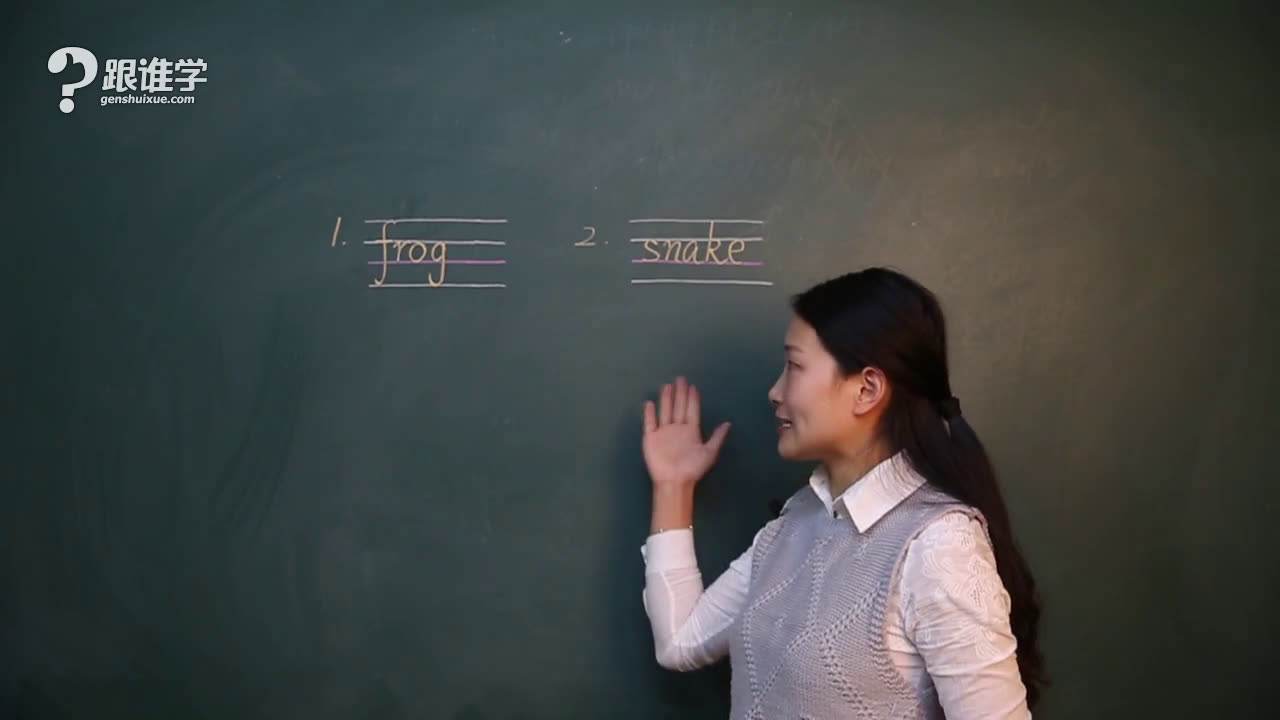 跟谁学
genshuixue.com
1. frog 2. snake